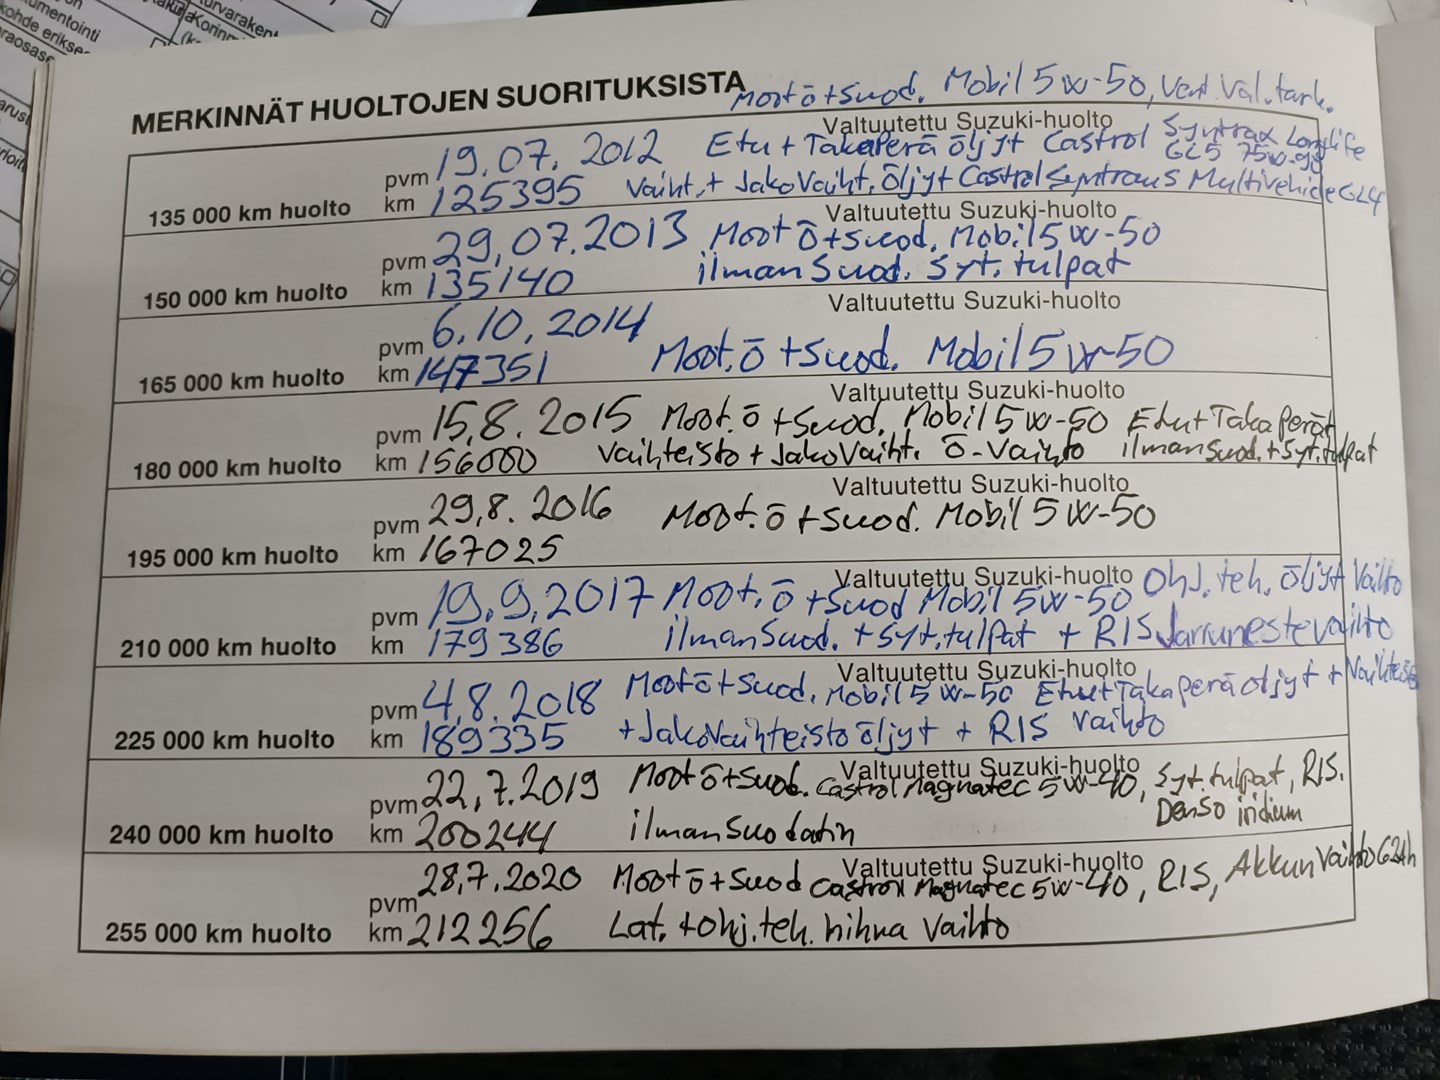 umentointi
kohde erikse
raosase
turvaraken
Korinm
arus
rioit
MERKINNÄT HUOLTOJEN SUORITUKSISTA
Moot ō+Suod. Mobil 5w-50, Vent.Val.tark.
Valtuutettu Suzuki-huolto
pvm 19.07.2012 Etu + Takaperä öljyt Castrol Syntrax Longlife GL5 75w-90
135 000 km huolto km 125395 Vaiht.+ JakoVaiht.öljyt Castrol Syntrans Multivehicle GL4
Valtuutettu Suzuki-huolto
pvm 29,07.2013 Moot ō+Suod. Mobil 5w-50
150 000 km huolto km 135140 ilmanSuod. Syt.tulpat
Valtuutettu Suzuki-huolto
pvm 6.10.2014
165 000 km huolto km 147351 Moot.ō +Suod. Mobil 5w-50
Valtuutettu Suzuki-huolto
pvm 15.8.2015 Moot.ō +Suod. Mobil 5w-50 Etu+Takaperät
180 000 km huolto km 156000 Vaihteisto + JakoVaiht. ō-Vaihto ilmanSuod.+Syt.tulpat
Valtuutettu Suzuki-huolto
pvm 29,8.2016 Moot.ō +Suod. Mobil 5w-50
195 000 km huolto km 167025
Valtuutettu Suzuki-huolto Ohj.teh. öljyt Vaihto
pvm 19.9.2017 Moot.ō +Suod Mobil 5w-50
210 000 km huolto km 179386 ilmanSuod. + Syt.tulpat + RIS Jarrunestevaihto
Valtuutettu Suzuki-huolto
pvm 4.8.2018 Moot ō+Suod. Mobil 5w-50 Etu+Takaperä öljyt +
225 000 km huolto km 189335 +JakoVaihteisto öljyt + RIS Vaihto
Valtuutettu Suzuki-huolto
pvm 22,7.2019 Moot ō+Suod. Castrol Magnatec 5w-40, Syt.tulpat, RIS.
Denso iridium
240 000 km huolto km 200244 ilman Suodatin
Valtuutettu Suzuki-huolto
pvm 28,7.2020 Moot ō+Suod Castrol Magnatec 5w-40, RIS, Akkun Vaihto 62Ah
255 000 km huolto km 212256 Lat.+ohj.teh. hihna Vaihto